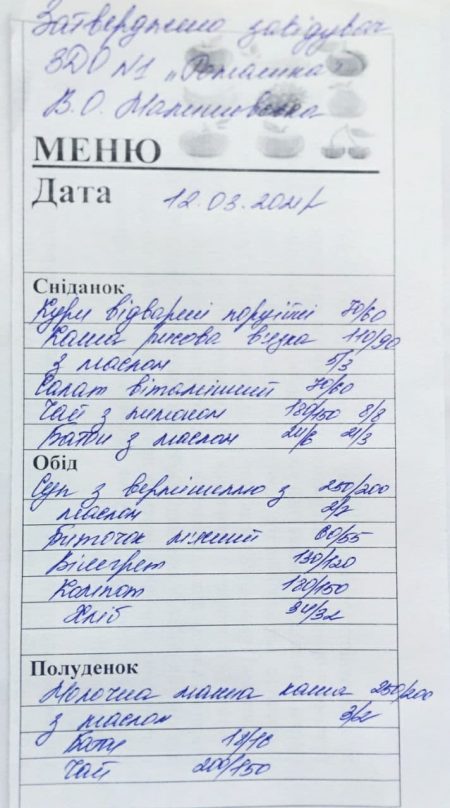 Затверджено завідувач
ЗДО №1 „Ромашка"
В.О.
МЕНЮ
Дата 12.03.2021р
Сніданок
Кури відварені порційні 70/60
Каша рисова в'язка 110/90
з маслом 5/3
Салат вітамінний 70/60
Чай з лимоном 180/150 8/8
Батон з маслом 24/6 21/3
Обід
Суп з вермішеллю з 250/200
маслом 2/2
Биточок 60/55
Вінегрет 130/120
Компот 180/150
Хліб 34/32
Полуденок
Молочна манна каша 250/200
з маслом 3/2
Батон 18/18
Чай 200/150